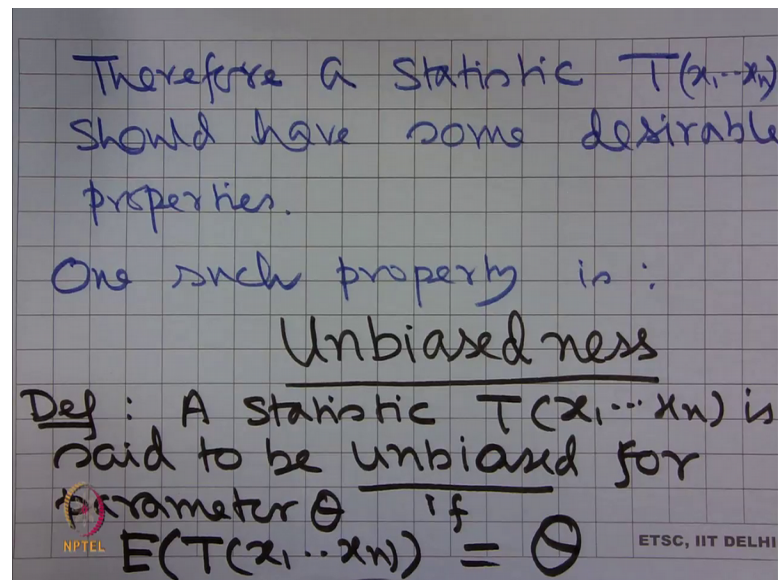 Therefore a statistic T(x₁...xₙ)
should have some desirable
properties.
One such property is :
Unbiasedness
Def : A statistic T(x₁...xₙ) is
said to be unbiased for
parameter θ if
E(T(x₁...xₙ)) = θ
NPTEL
ETSC, IIT DELHI